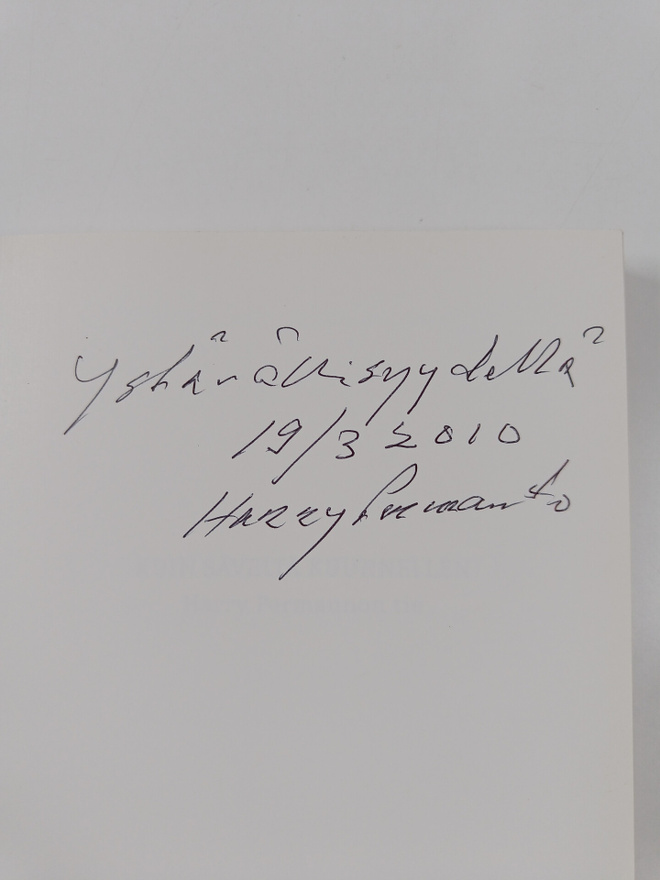 Ystävällisyydellä
19/3 2010
Harry